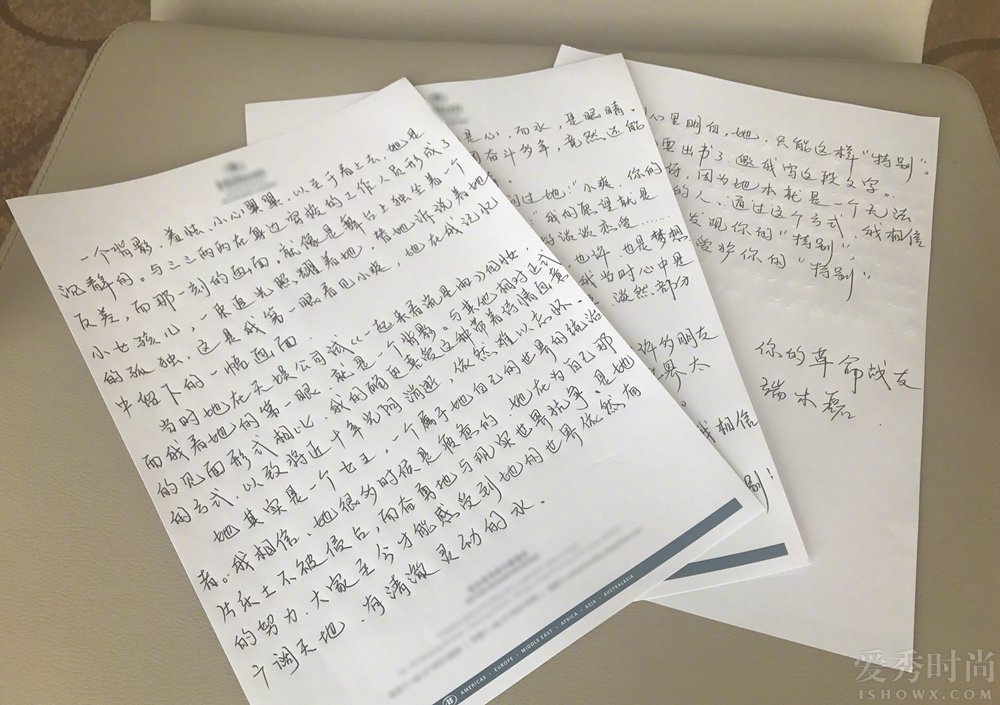 一个背影，着装，小心翼翼，以至于看上去，她是
沉静的。与三三两两在身边穿梭的工作人员形成了
反差，而那一刻的画面，就像是舞台上独坐着一个
小女孩儿，一束追光照耀着她，替她诉说着她
的孤独。这是我第一眼看见小爽，她在我记忆
中留下的一幅画面。
当时她在天娱公司试《一起来看流星雨》的妆，
而我看她的第一眼，就是一个背影。与其他相对正式
的见面形式相比，我的确更喜爱这种带着诗情画意
的方式，以致将近十年光阴消逝，依然难以忘怀。
她其实是一个女王，一个属于她自己的世界的统治
者。我相信，她很多时候是疲惫的，她在为自己那
片乐土不被侵占，而奋勇地与现实世界抗争，是她
的努力，大家至今才能感受到她的世界依然有
广阔天地，有清澈灵动的水。
AMERICAS · EUROPE · MIDDLE EAST · AFRICA · ASIA · AUSTRALASIA
是心，而水，是眼睛。
奋斗多年，竟然还能
问过她：“小爽，你的
“我的愿望就是
谈谈恋爱……
也许，也是梦想
我当时心中是
淡然部分
许的朋友
世界太
我相信
别！
心里明白，她，只能这样“特别”。
要出书了，邀我写这段文字。
因为她本就是一个无法
的人，通过这个方式，我相信
发现你的“特别”，
爱称你的“特别”。
你的革命战友
端木磊
爱秀时尚
ISHOWX.COM